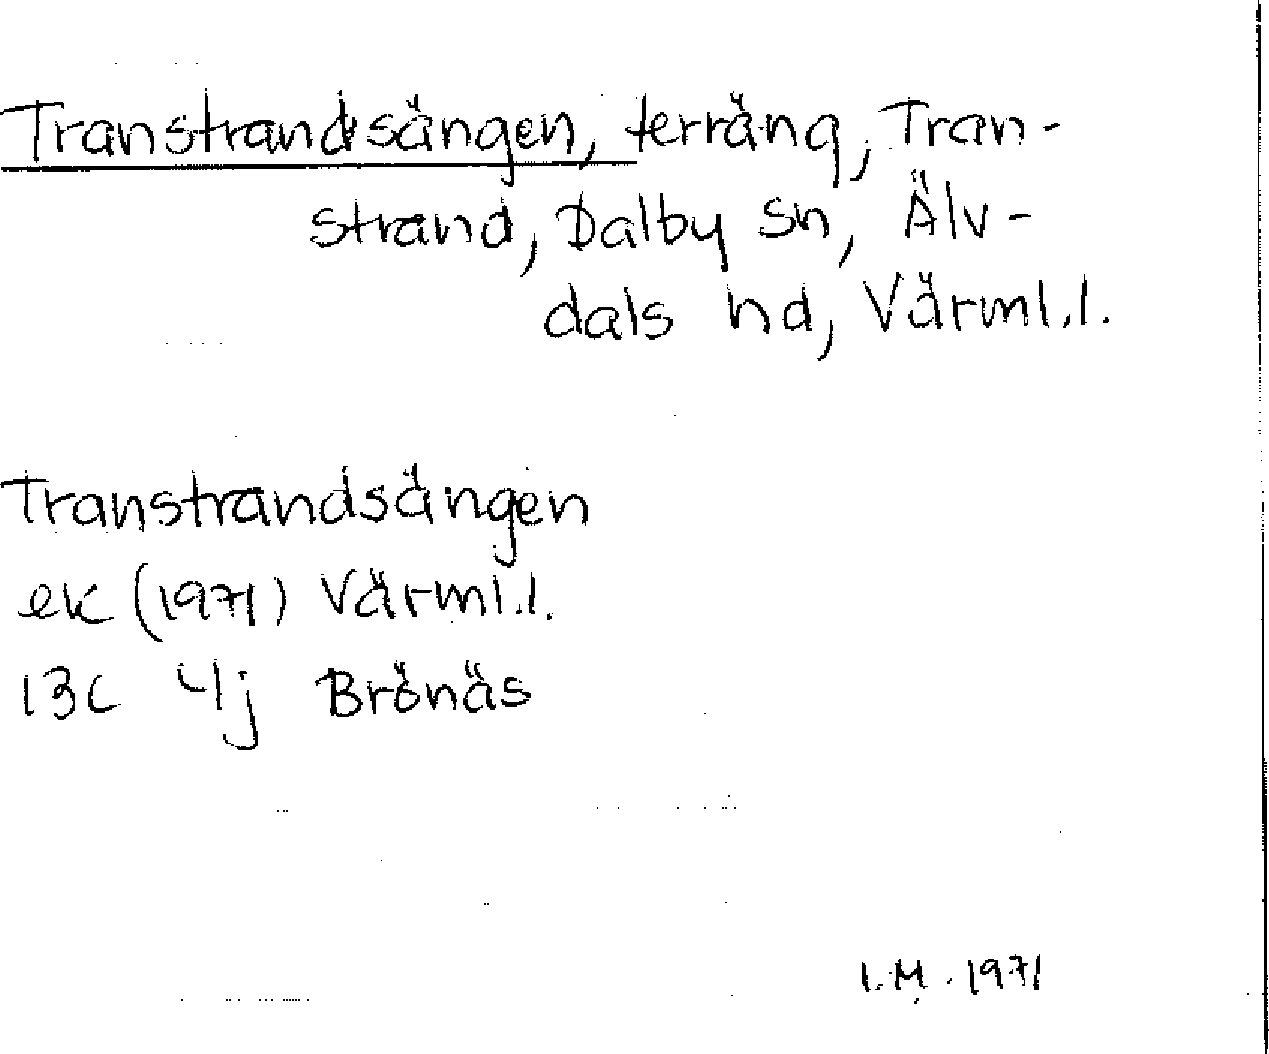 Transtrandsängen, terräng, Tran-
strand, Dalby sn, Älv-
dals hd, Värml.l.
Transtrandsängen
ek (1971) Värml.l.
13C 4j Brönäs
I.M. 1971